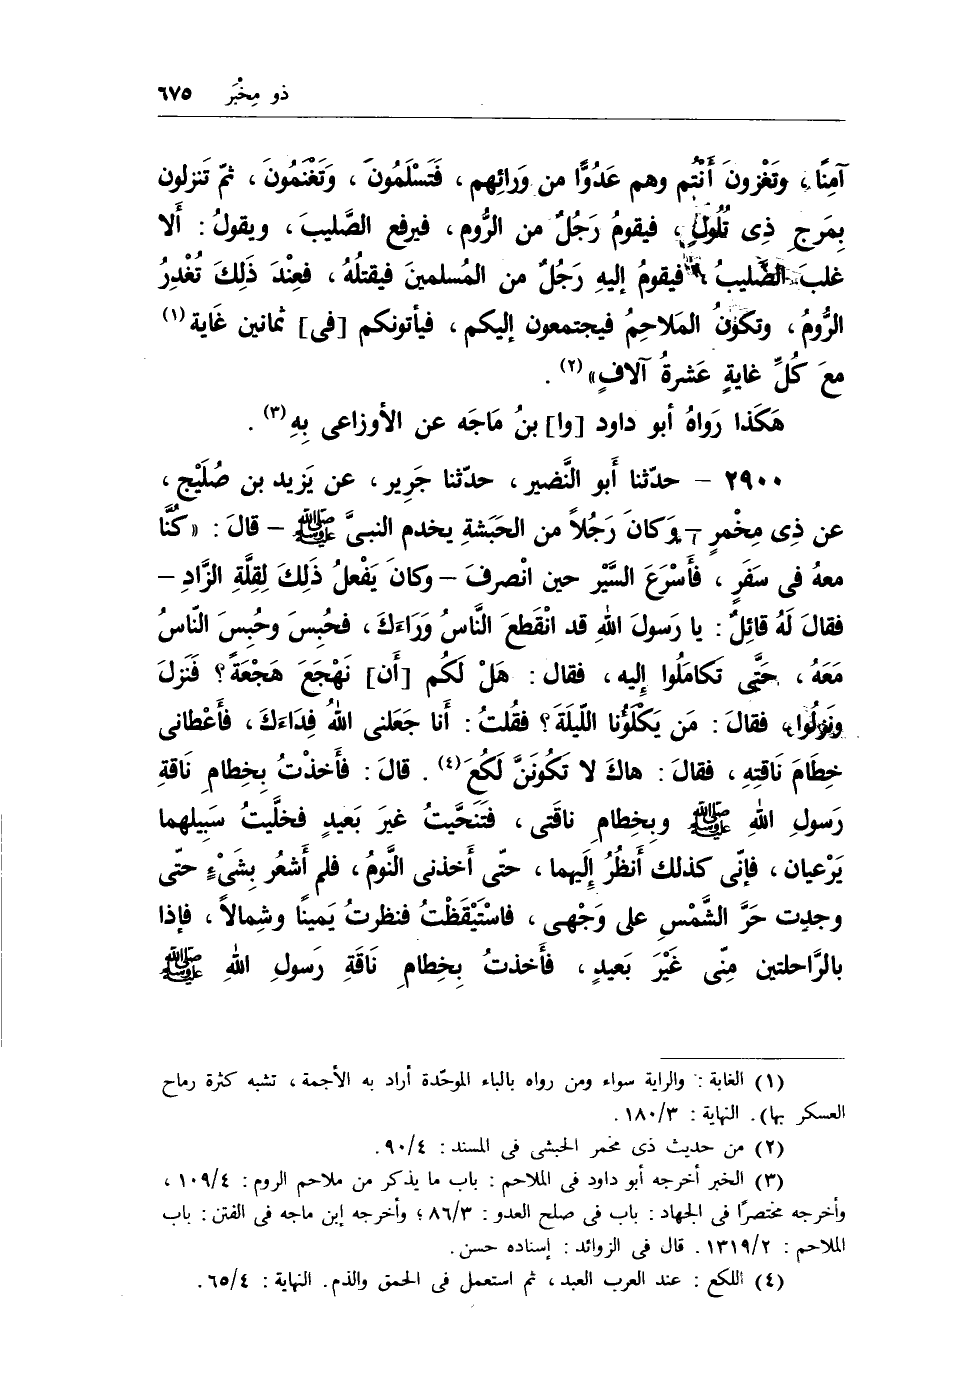 ذو مِخْبَر ٦٧٥
آمِنًا ، وتَغْزونَ أَنْتُم وهم عَدُوًّا من وَرائِهم ، فَتَسْلَمُونَ ، وَتَغْنَمُونَ ، ثمّ تَنزلون
بِمَرجِ ذِى تُلُولٍ ، فيقومُ رَجُلٌ من الرُّوم ، فيرفع الصَّليبَ ، ويقولُ : أَلا
غلبَ الصَّليبُ ، فيقومُ إليهِ رَجُلٌ من المُسلمينَ فيقتلُهُ ، فعِنْدَ ذَلِكَ تُغْدِرُ
الرُّومُ ، وتكوْنُ المَلاحِمُ فيجتمعون إليكم ، فيأتونكم [فى] ثمانين غَاية (١)
معَ كُلِّ غايةٍ عَشرةُ آلافٍ» (٢) .
هَكَذا رَواهُ أبو داود [وا] بنُ مَاجَه عن الأوزاعى بِهِ (٣) .
٢٩٠٠ – حدّثنا أَبو النَّضير ، حدّثنا جَرِير ، عن يَزيد بن صُلَيْح ،
عن ذِى مِخْمرٍ – وَكانَ رَجُلاً من الحَبَشةِ يخدم النبىَّ ﷺ – قالَ : « كُنَّا
معهُ فى سَفَرٍ ، فأَسْرَعَ السَّيْر حين انْصرفَ – وكانَ يَفْعلُ ذَلِكَ لِقِلَّةِ الزَّادِ –
فقالَ لَهُ قائِلٌ : يا رَسولَ اللهِ قد انْقَطعَ النَّاسُ وَرَاءَكَ ، فحُبِسَ وحُبِسَ النّاسُ
مَعَهُ ، حَتَّى تكامَلُوا إِليه ، فقال : هَلْ لَكُم [أن] نَهْجَعَ هَجْعَةً؟ فَنَزلَ
ونزلُوا ، فقالَ : مَن يَكْلَؤُنا اللّيلَةَ؟ فقُلتُ : أَنا جَعَلنى اللهُ فِدَاءَكَ ، فأَعْطانى
خِطَامَ نَاقتِهِ ، فقالَ : هاكَ لا تكُونَنَّ لُكَعَ (٤) . قالَ : فأَخذْتُ بخِطامِ ناقةِ
رَسولِ اللهِ ﷺ وبخِطامِ ناقَتى ، فتَنَحَّيتُ غيرَ بَعيدٍ فخلَّيتُ سَبيلهما
يَرْعيان ، فإنّى كذلك أَنظُرُ إِلَيهما ، حتّى أَخذنى النَّومُ ، فلم أَشعُر بشَىْءٍ حتّى
وجدِت حَرَّ الشَّمْسِ على وَجْهى ، فاسْتَيْقَظْتُ فنظرتُ يَمينًا وشِمالاً ، فإذا
بالرَّاحلتين مِنّى غَيْرَ بَعيدٍ ، فأَخذتُ بخِطامِ نَاقَةِ رَسولِ اللهِ ﷺ
(١) الغاية : والراية سواء ومن رواه بالباء الموحّدة أراد به الأجمة ، تشبه كثرة رماح
العسكر بها). النهاية : ١٨٠/٣ .
(٢) من حديث ذى مخمر الحبشى فى المسند : ٩٠/٤ .
(٣) الخبر أخرجه أبو داود فى الملاحم : باب ما يذكر من ملاحم الروم : ١٠٩/٤ ،
وأخرجه مختصرًا فى الجهاد : باب فى صلح العدو : ٨٦/٣ ؛ وأخرجه إبن ماجه فى الفتن : باب
الملاحم : ١٣١٩/٢ . قال فى الزوائد : إسناده حسن .
(٤) اللكع : عند العرب العبد ، ثم استعمل فى الحمق والذم . النهاية : ٦٥/٤ .